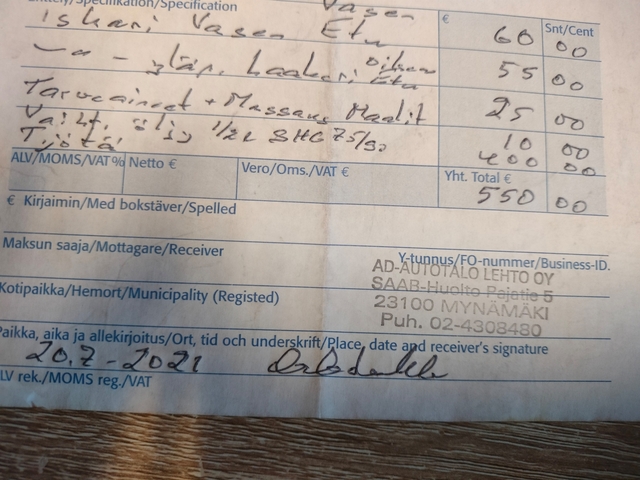 /Spezifikation/Specification
Vasen
€ Snt/Cent
Iskari Vasen Etu 60 00
oikea
yläp. Etu 55 00
Tarvaineet + Maalit 25 00
Vaiht. öljy 1/2 L 75/90 10 00
Työtä 400 00
ALV/MOMS/VAT% Netto € Vero/Oms./VAT € Yht. Total €
550 00
€ Kirjaimin/Med bokstäver/Spelled
Maksun saaja/Mottagare/Receiver Y-tunnus/FO-nummer/Business-ID.
AD-AUTOTALO LEHTO OY
SAAB-Huolto Pajatie 5
Kotipaikka/Hemort/Municipality (Registed)
23100 MYNÄMÄKI
Puh. 02-4308480
Paikka, aika ja allekirjoitus/Ort, tid och underskrift/Place, date and receiver's signature
20.7-2021
ALV rek./MOMS reg./VAT